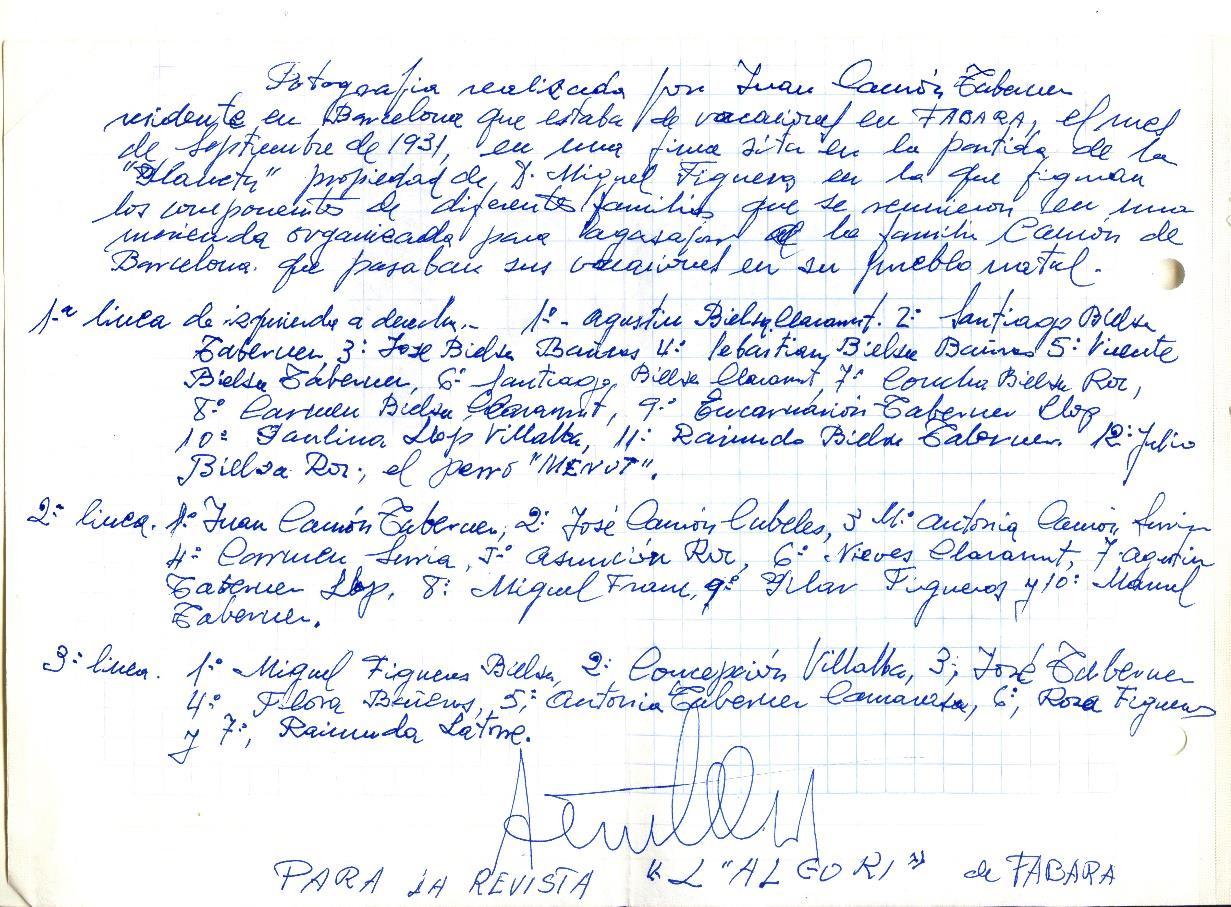 Fotografia realizada por Juan Camón Taberner
residente en Barcelona que estaba de vacaciones en FABARA, el mes
de Septiembre de 1931, en una finca sita en la partida de la
propiedad de, D. Miguel Figueras en la que figuran
los componentes de diferentes familias que se reunieron en una
merienda organizada para agasajar a la familia Camón de
Barcelona. que pasaban sus vacaciones en su pueblo natal.
1ª linea de izquierda a derecha.- 1º- Agustin Bielsa Claramunt. 2º Santiago Bielsa
Taberner, 3º Jose Bielsa Bañeres 4º Sebastian Bielsa Bañeres 5º Vicente
Bielsa Taberner, 6º Santiago Bielsa Claramunt, 7º Concha Bielsa Roc,
8º Carmen Bielsa Claramunt, 9º Encarnación Taberner Llop
10º Paulina Llop Villalba, 11º Raimundo Bielsa Taberner 12º Julio
Bielsa Roc, el perro "MENUT".
2ª linea. 1º Juan Camón Taberner, 2º José Camón Cubeles, 3 Mª Antonia Camón
4º Carmen, 5º Asunción Roc, 6º Nieves Claramunt, 7º Agustin
Taberner Llop, 8º Miguel Franc, 9º Pilar Figueras y 10º Manuel
Taberner.
3ª linea. 1º Miguel Figueras Bielsa, 2º Concepción Villalba, 3º, José Taberner
4º Flora Bañeres, 5º, Antonia Taberner Camarasa, 6º, Rosa Figueras
y 7º, Raimunda Latorre.
PARA LA REVISTA "L"ALGORI" de FABARA